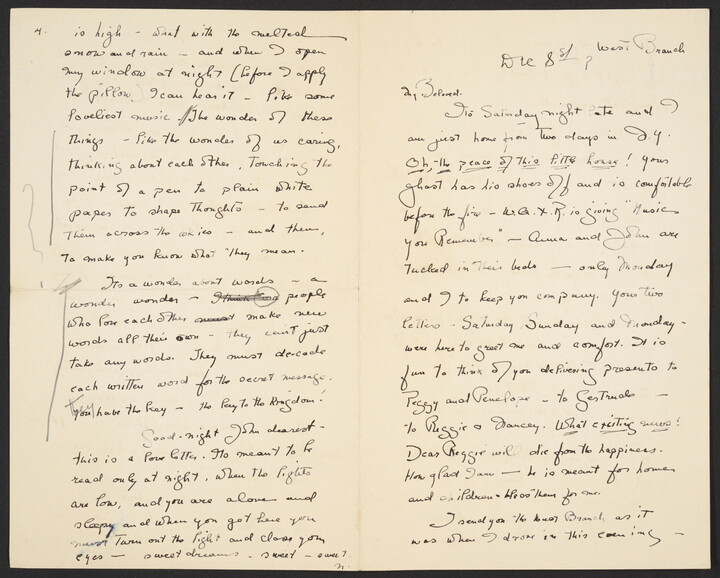 4.
is high - what with the melted
snow and rain - and when I open
my window at night (before I apply
the pillow) I can hear it - like some
loveliest music. The wonder of these
things - like the wonder of us caring,
thinking about each other, touching the
point of a pen to plain white
paper to shape thoughts - to send
them across the - and then,
to make you know what they mean.
Its a wonder about words - a
wonder wonder - people
who love each other must make new
words all their own - they can't just
take any words. They must decode
each written word for the secret message.
You have the key - the key to the Kingdom!
Good-night John dearest -
this is a love letter. Its meant to be
read only at night, when the lights
are low, and you are alone and
sleepy and when you get here you
must turn out the light and close your
eyes - sweet dreams - sweet - sweet
West Branch
Dec 8st ?
My Beloved.
Its Saturday night late and I
am just home from two days in N.Y.
Oh, the peace of this little house! Your
ghost has his shoes off and is comfortable
before the fire - W.Q.X.R. is giving "Music
you Remember" - Anna and John are
tucked in their beds - only Monday
and I to keep you company. Your two
letters - Saturday, Sunday and Monday -
were here to greet me and comfort. It is
fun to think of you delivering presents to
Peggy and Penelope - to Gertrude -
to Reggie & What exciting news!
Dear Reggie will die from the happiness.
How glad I am - he is meant for home
and children - bless them for me.
I send you the West Branch as it
was when I drove in this evening -